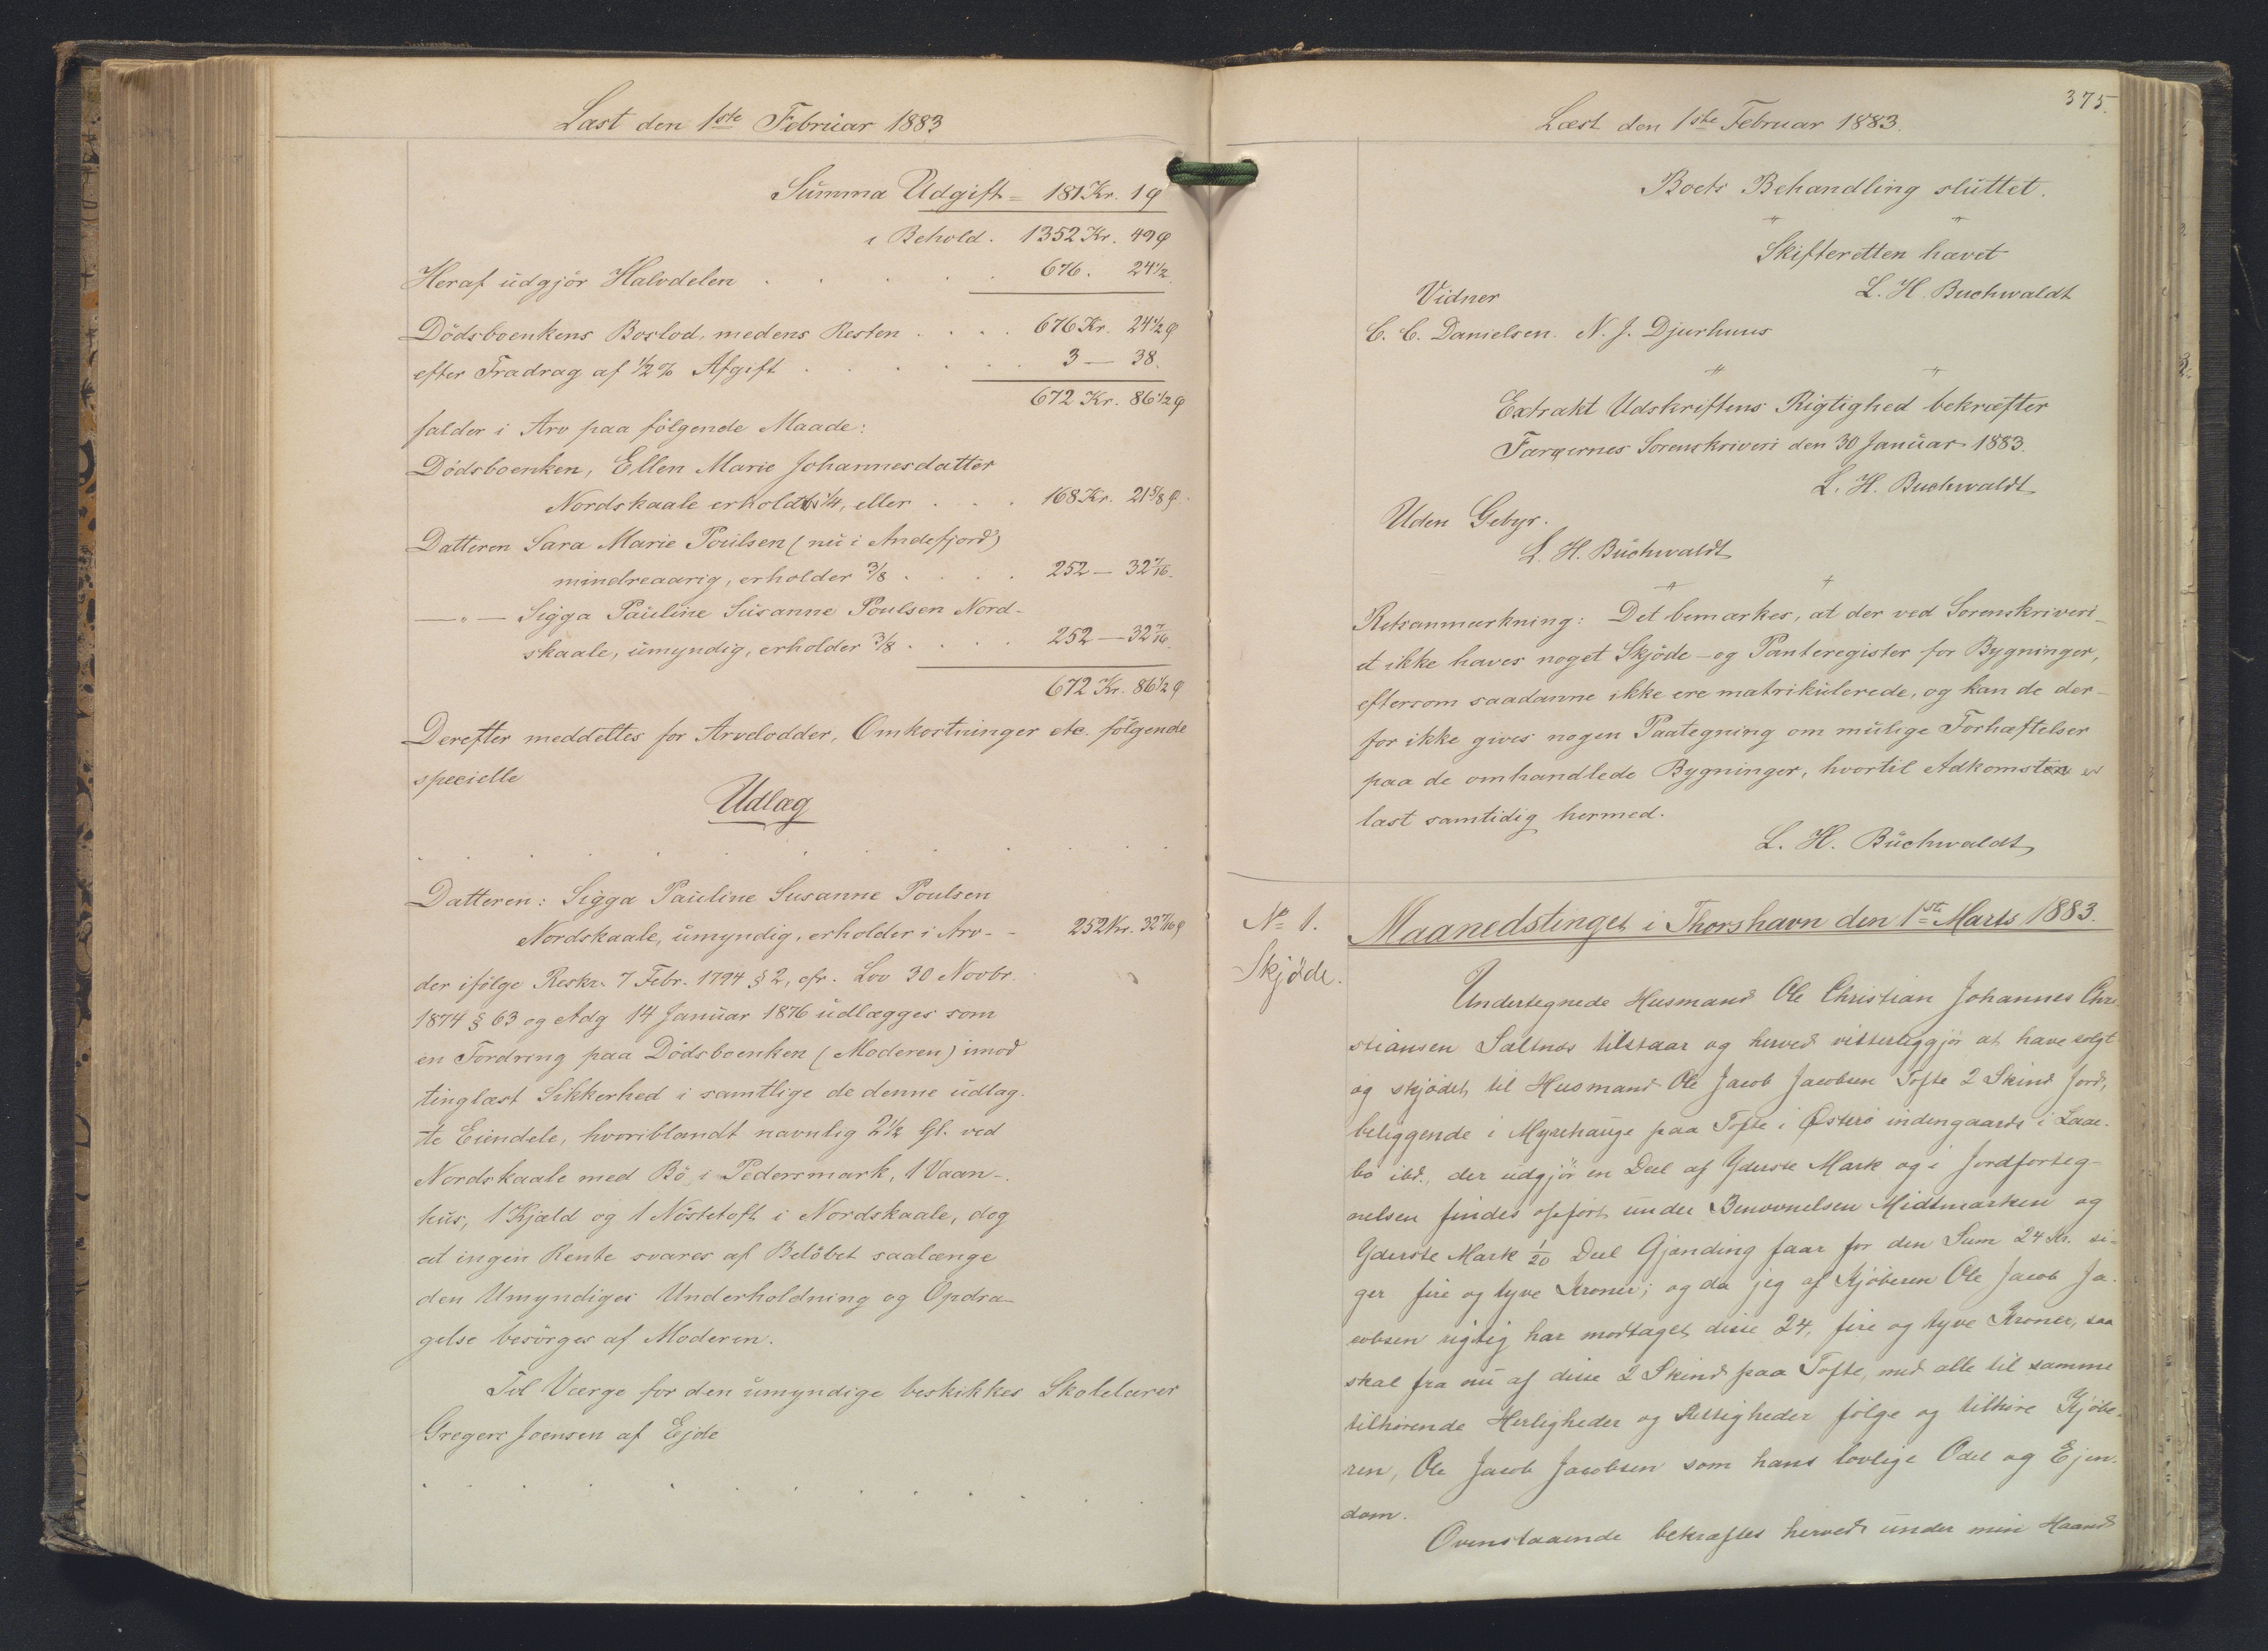 Læst den 1ste Februar 1883
Summa Udgift = 181 Kr. 1 Ø
i Behold. 1352 Kr. 49 Ø
Heraf udgjör Halvdelen . . . . . 676. 24 1/2
Dödsboenkens Boslod, medens Resten . . . . 676 Kr. 24 1/2 Ø
efter Fradrag af 1/2 % Afgift . . . . . . 3 — 38.
672 Kr. 86 1/2 Ø
falder i Arv paa fölgende Maade:
Dödsboenken, Ellen Marie Johannesdatter
Nordskaale erholder 1/4, eller . . . 168 Kr. 21 5/8 Ø
Datteren Sara Marie Poulsen (nu i Andefjord)
mindreaarig, erholder 3/8 . . . . 252 — 32 7/16.
— „ — Sigga Pauline Susanne Poulsen Nord-
skaale, umyndig, erholder 3/8 . . . . 252 — 32 7/16.
672 Kr. 86 1/2 Ø
Derefter meddeltes for Arvelodder, Omkostninger etc. fölgende
specielle
Udlæg
. . . . . . . . . . . .
Datteren: Sigga Pauline Susanne Poulsen
Nordskaale, umyndig, erholder i Arv - - 252 Kr. 32 7/16 Ø
der ifölge Reskr. 7 Febr. 1794 § 2, cfr. Lov 30 Novbr.
1874 § 63 og Adg 14 Januar 1876 udlægges som
en Fordring paa Dödsboenken (Moderen) imod
tinglæst Sikkerhed i samtlige de denne udlag-
te Eiendele, hvoriblandt navnlig 2 1/2 Gl. ved
Nordskaale med Bö, i Pedersmark, 1 Vaan-
hus, 1 Kjæld og 1 Nöstetoft i Nordskaale, dog
at ingen Rente svares af Belöbet saalænge
den Umyndiges Underholdning og Opdra-
gelse besörges af Moderen.
Til Værge for den umyndige beskikkes Skolelærer
Gregers Joensen af Ejde
. . . . . . . . . . . .
375.
Læst den 1ste Februar 1883.
Boets Behandling sluttet.
Skifteretten hævet
L. H. Buchwaldt
Vidner
C. C. Danielsen. N. J. Djurhuus
Extrakt Udskriftens Rigtighed bekræfter
Færøernes Sorenskriveri den 30 Januar 1883.
L. H. Buchwaldt
Uden Gebyr.
L. H. Buchwaldt
Retsanmærkning: Det bemærkes, at der ved Sorenskriveri-
et ikke haves noget Skjöde- og Panteregister for Bygninger,
eftersom saadanne ikke ere matrikulerede, og kan de der-
for ikke gives nogen Paategning om mulige Forhæftelser
paa de omhandlede Bygninger, hvortil Adkomsten er
læst samtidig hermed.
L. H. Buchwaldt
No 1. Maanedstinget i Thorshavn den 1ste Marts 1883.
Skjöde.
Undertegnede Husmand Ole Christian Johannes Chri-
stiansen Saltnes tilstaar og herved vitterliggjör at have solgt
og skjödet til Husmand Ole Jacob Jacobsen Tofte 2 Skind Jord,
beliggende i Myrehauge paa Tofte i Østerö indengaards i Laae-
bö ibd., der udgjör en Deel af Yderste Mark og i Jordforteg-
nelsen findes opfört under Benævnelsen Midtmarken og
Yderste Mark 1/20 Deel Gjænding faar for den Sum 24 Kr. si-
ger fire og tyve Kroner; og da jeg af Kjöberen Ole Jacob Ja-
cobsen rigtig har modtaget disse 24, fire og tyve Kroner, saa
skal fra nu af disse 2 Skind paa Tofte, med alle til samme
tilhörende Herligheder og Rettigheder fölge og tilhöre Kjöbe-
ren, Ole Jacob Jacobsen som hans lovlige Odel og Ejen-
dom.
Ovenstaaende bekræftes herved under min Haand